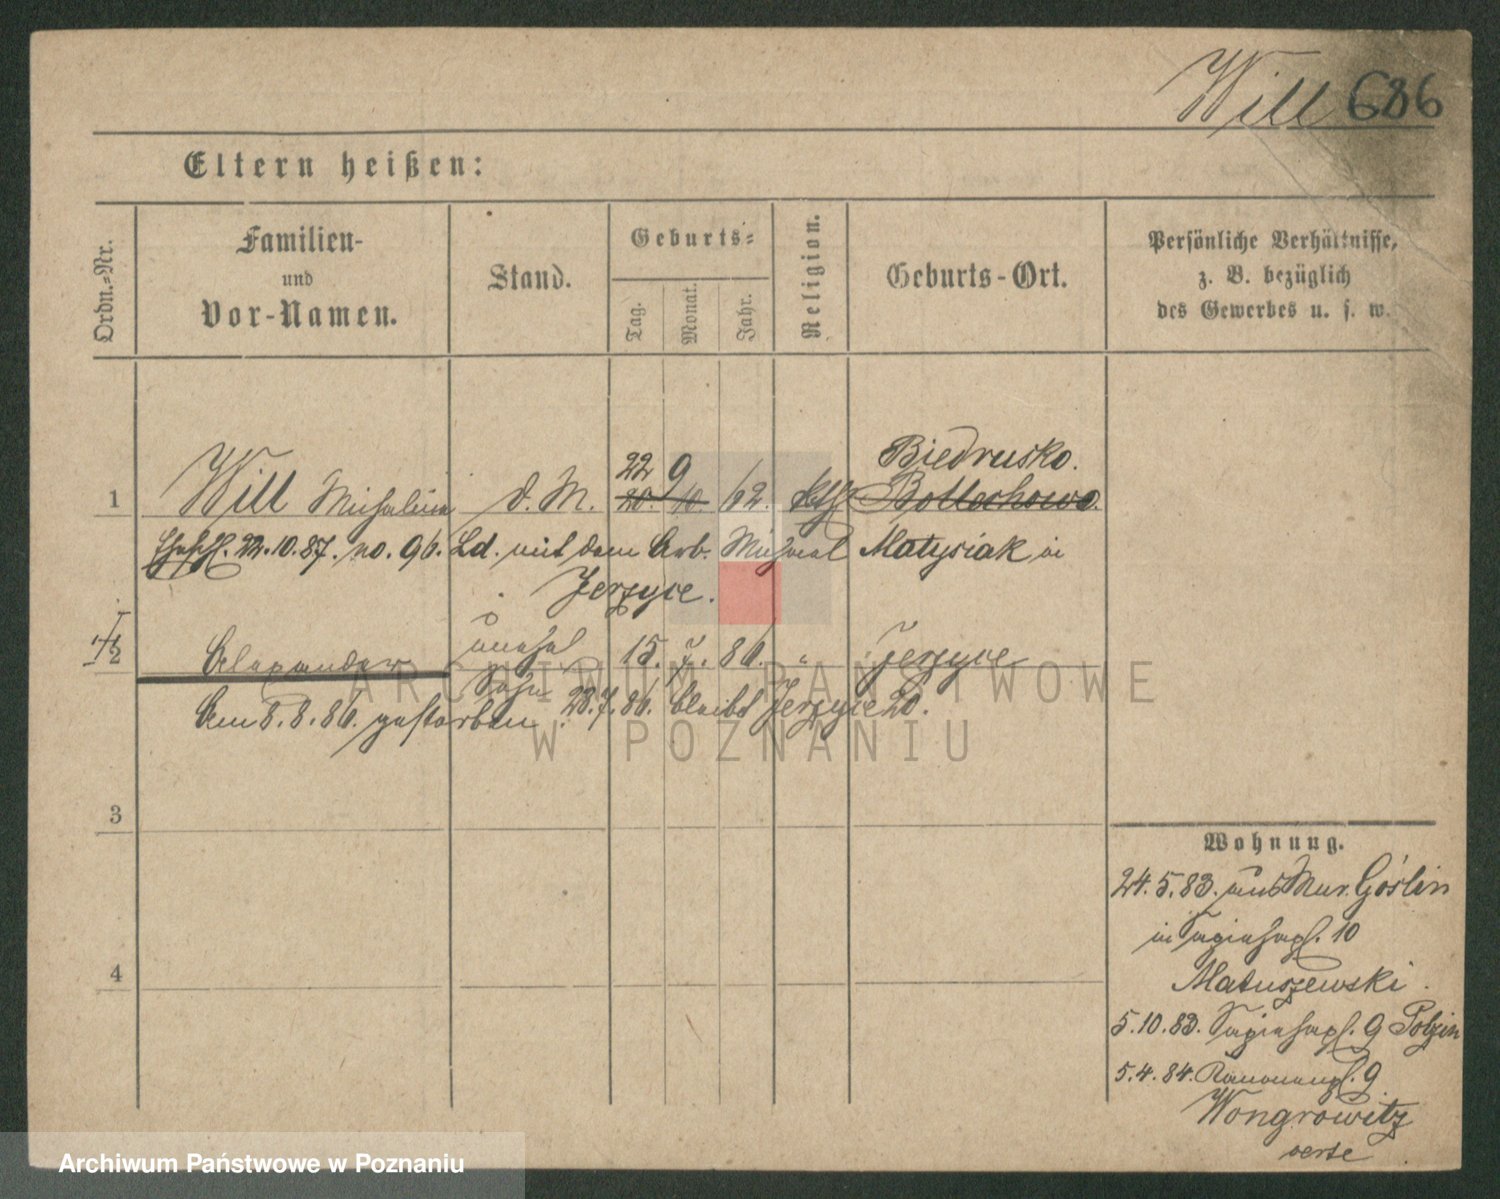 Will 686
Eltern heißen:
Ordn.-Nr.
Familien-
und
Vor-Namen.
Stand.
Geburts-
Tag.
Monat.
Jahr.
Religion.
Geburts-Ort.
Persönliche Verhältnisse,
z. B. bezüglich
des Gewerbes u. s. w.
22 9 Biedrusko.
1 Will Michalina d. M. 20. 10. 62. kth Bollechowo.
22.10.87. no. 96. Ld. mit dem Arb. Michael Matysiak in
Jerzyce.
Alexander unehel Sohn 15. 7. 86. " Jerzyce
Am 8.8.86. gestorben. 28.7.86. bleibt Jerzyce 20.
3
4
Wohnung.
24.5.83. aus Mur. Goślin
in 10
Matuszewski.
5.10.83. 9 Polzin
5.4.84. 9
Wongrowitz
verte
ARCHIWUM PAŃSTWOWE
W POZNANIU
Archiwum Państwowe w Poznaniu